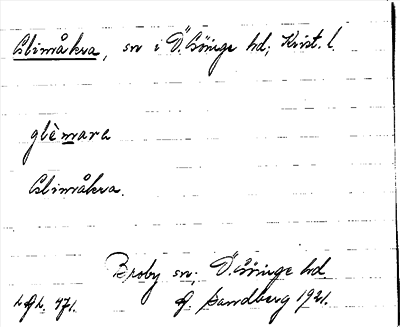 Glimåkra, sn i Ö. Göinge hd; Krist. l.
glèmara
Glimåkra.
Broby sn; Ö. Göinge hd.
G. Sandberg 1921.